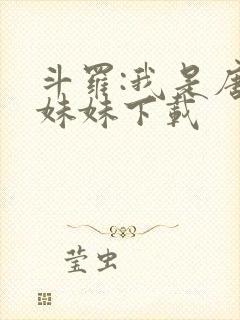 斗羅:我是唐
妹妹下載
莹虫